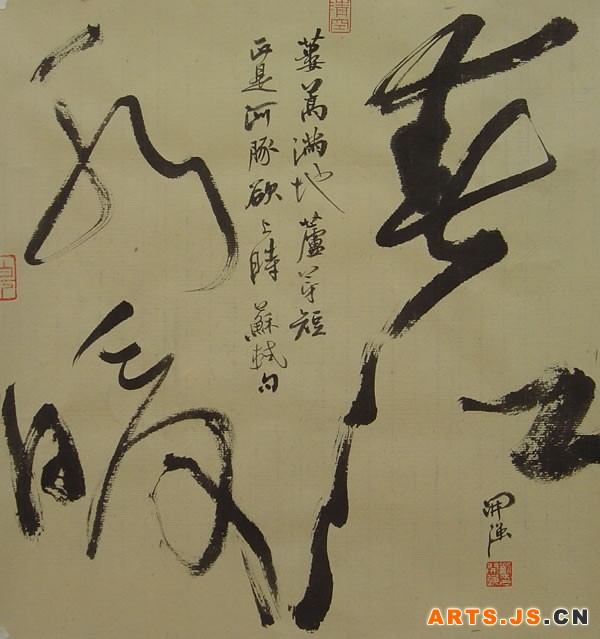 春江
水暖
蔞蒿滿地蘆芽短
正是河豚欲上時 蘇軾句
ARTS.JS.CN